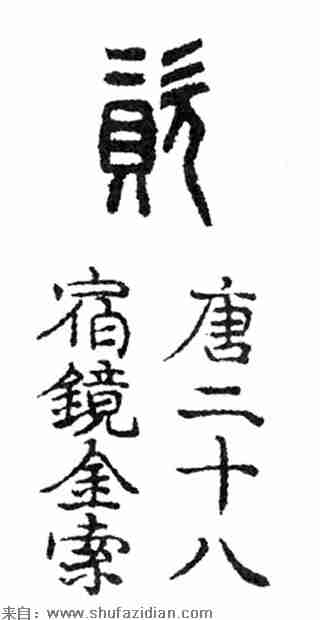 唐二十八
宿鏡金索
来自：www.shufazidian.com